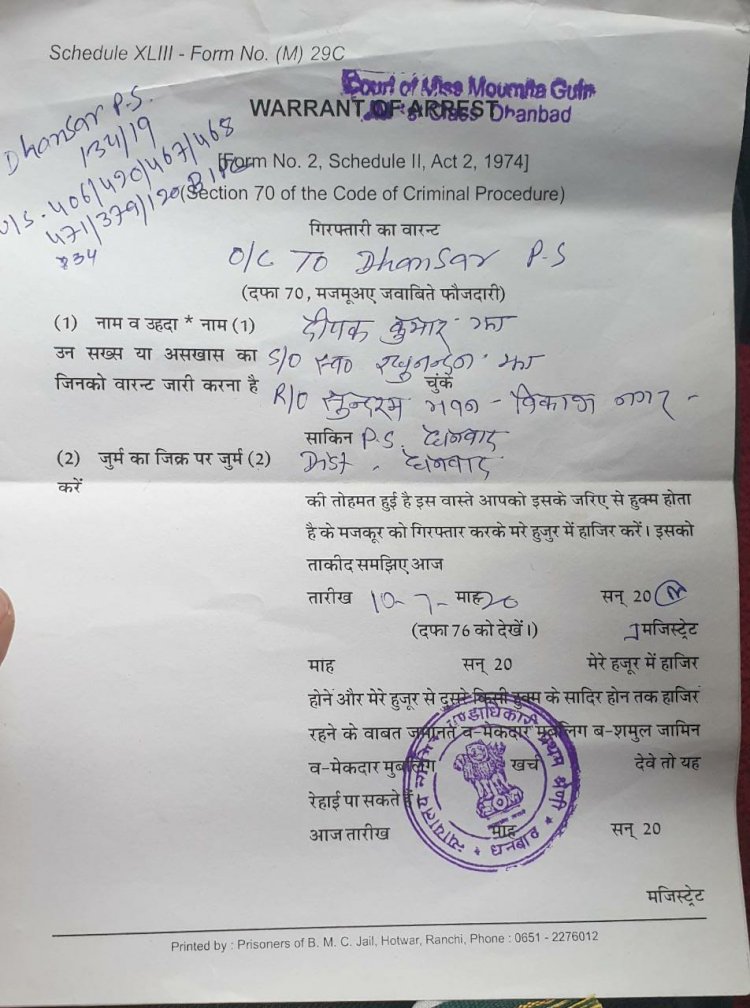 Schedule XLIII - Form No. (M) 29C
Court of Miss Moumita Guin
WARRANT OF ARREST
Class Dhanbad
Dhansar P.S.
134/19
U/S. 406/420/467/468
471/379/120B IPC
34
[Form No. 2, Schedule II, Act 2, 1974]
(Section 70 of the Code of Criminal Procedure)
गिरफ्तारी का वारन्ट
O/C TO Dhansar P-S
(दफा 70, मजमूअए जवाबिते फौजदारी)
(1) नाम व उहदा * नाम (1) दीपक कुमार झा
उन सख्स या असखास का S/O स्व० रघुनन्दन झा
जिनको वारन्ट जारी करना है चुंके
R/O सुन्दरम भवन - विकाश नगर -
साकिन P.S. धनबाद
(2) जुर्म का जिक्र पर जुर्म (2) Dist. धनबाद
करें
की तोहमत हुई है इस वास्ते आपको इसके जरिए से हुक्म होता
है के मजकूर को गिरफ्तार करके मरे हुजुर में हाजिर करें। इसको
ताकीद समझिए आज
तारीख 10-7- माह 20 सन् 20
(दफा 76 को देखें।) मजिस्ट्रेट
माह सन् 20 मेरे हजूर में हाजिर
होनें और मेरे हुजुर से दुसरे किसी हुक्म के सादिर होन तक हाजिर
रहने के वाबत जमानत व-मेकदार मुबलिग ब-शमुल जामिन
व-मेकदार मुबलिग खर्च देवे तो यह
रेहाई पा सकते हैं।
आज तारीख माह सन् 20
न्यायालय न्यायिक दण्डाधिकारी प्रथम श्रेणी
धनबाद
मजिस्ट्रेट
Printed by : Prisoners of B. M. C. Jail, Hotwar, Ranchi, Phone : 0651 - 2276012